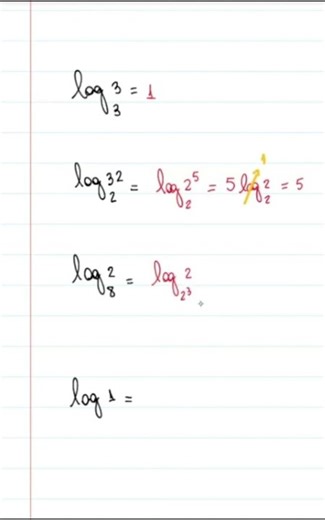 log₃ 3 = 1
log₂ 32 = log₂ 2⁵ = 5 log₂ 2 1 = 5
log₈ 2 = log₂³ 2
log 1 =